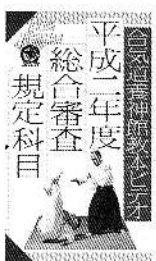 合気道養神館教本ビデオ
平成二年度
総合審査
規定科目